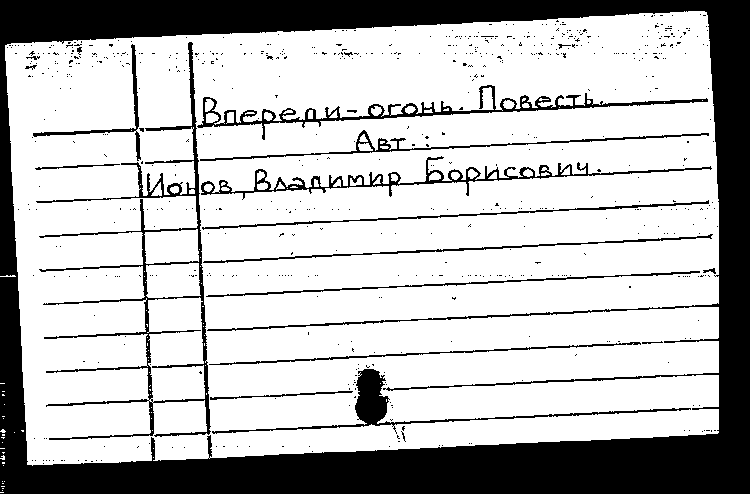 Впереди-огонь. Повесть.
Авт.:
Ионов, Владимир Борисович.